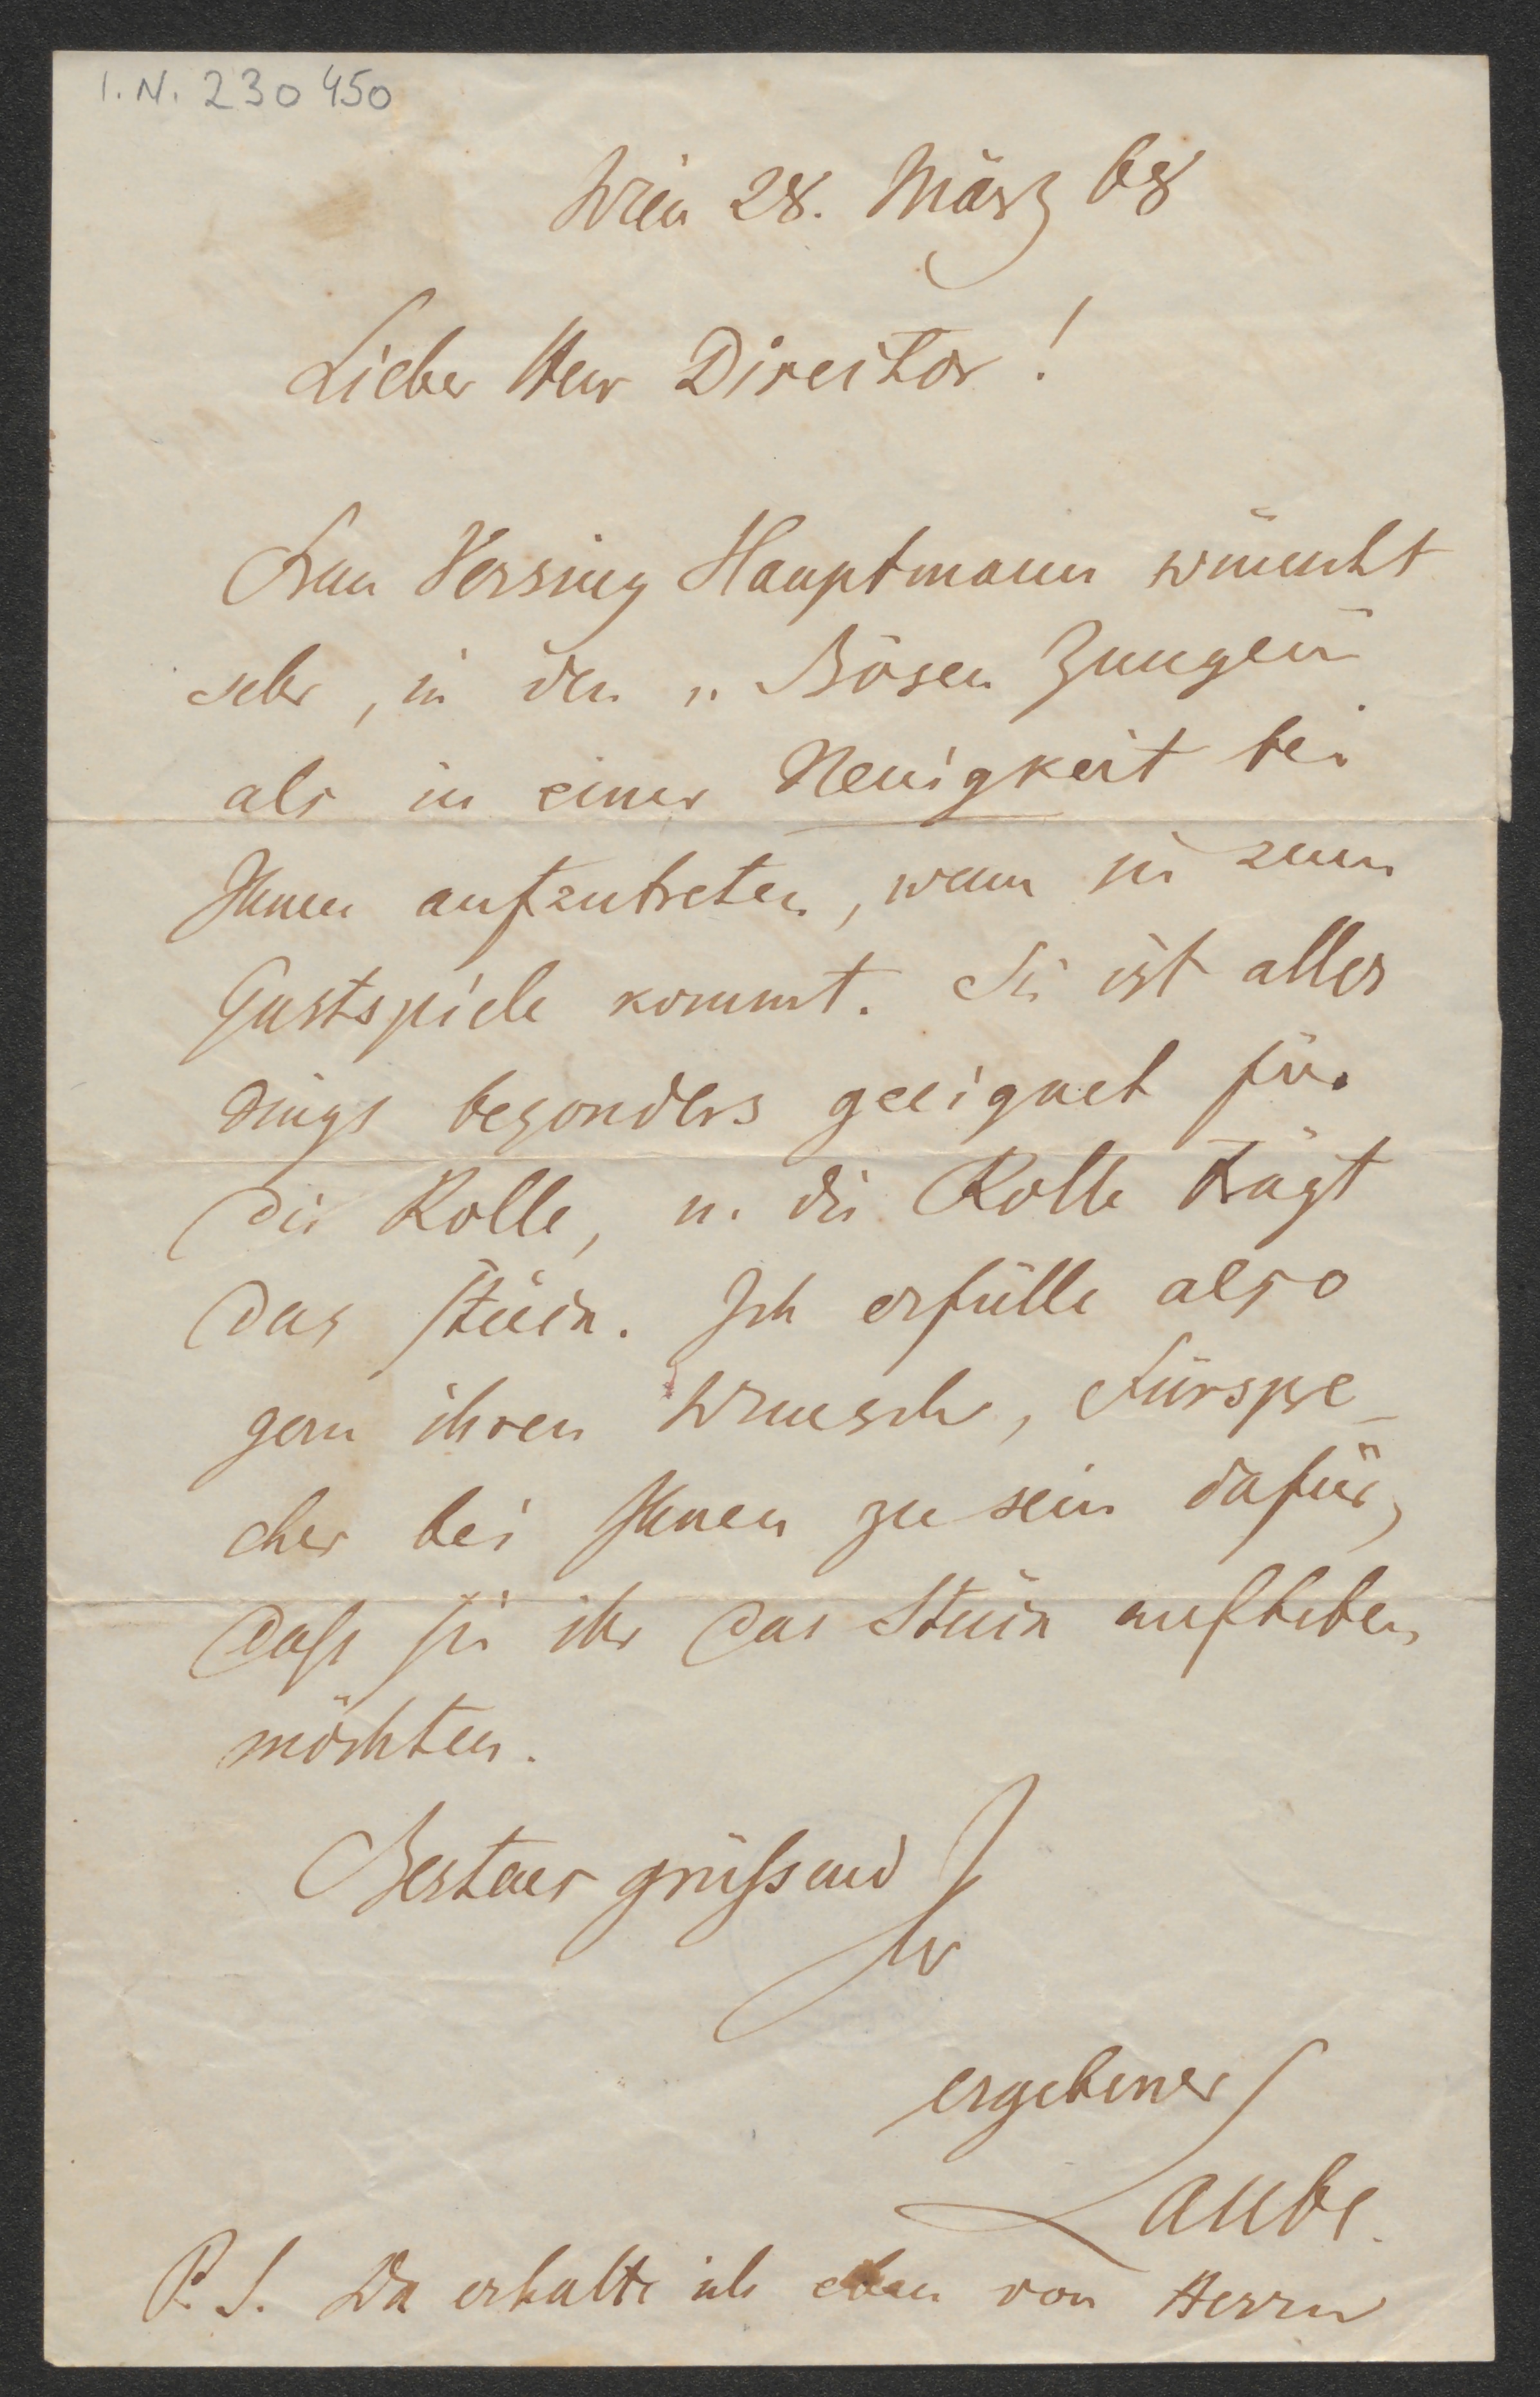 I.N. 230450
Wien 28. März 68
Lieber Herr Direcktor!
Frau Versing Hauptmann wünscht
sehr, in den „Bösen Zungen"
als in einer Neuigkeit bei
Ihnen aufzutreten, wenn sie zum
Gastspiele kommt. Sie ist aller
dings besonders geeignet für
die Rolle, u. die Rolle trägt
das Stück. Ich erfülle also
gern ihren Wunsch, Fürspre-
cher bei Ihnen zu sein dafür,
daß Sie ihr das Stück aufheben
möchten.
Bestens grüßend
Ihr
ergebener
Laube.
P. S. Da erhalte ich eben von Herrn